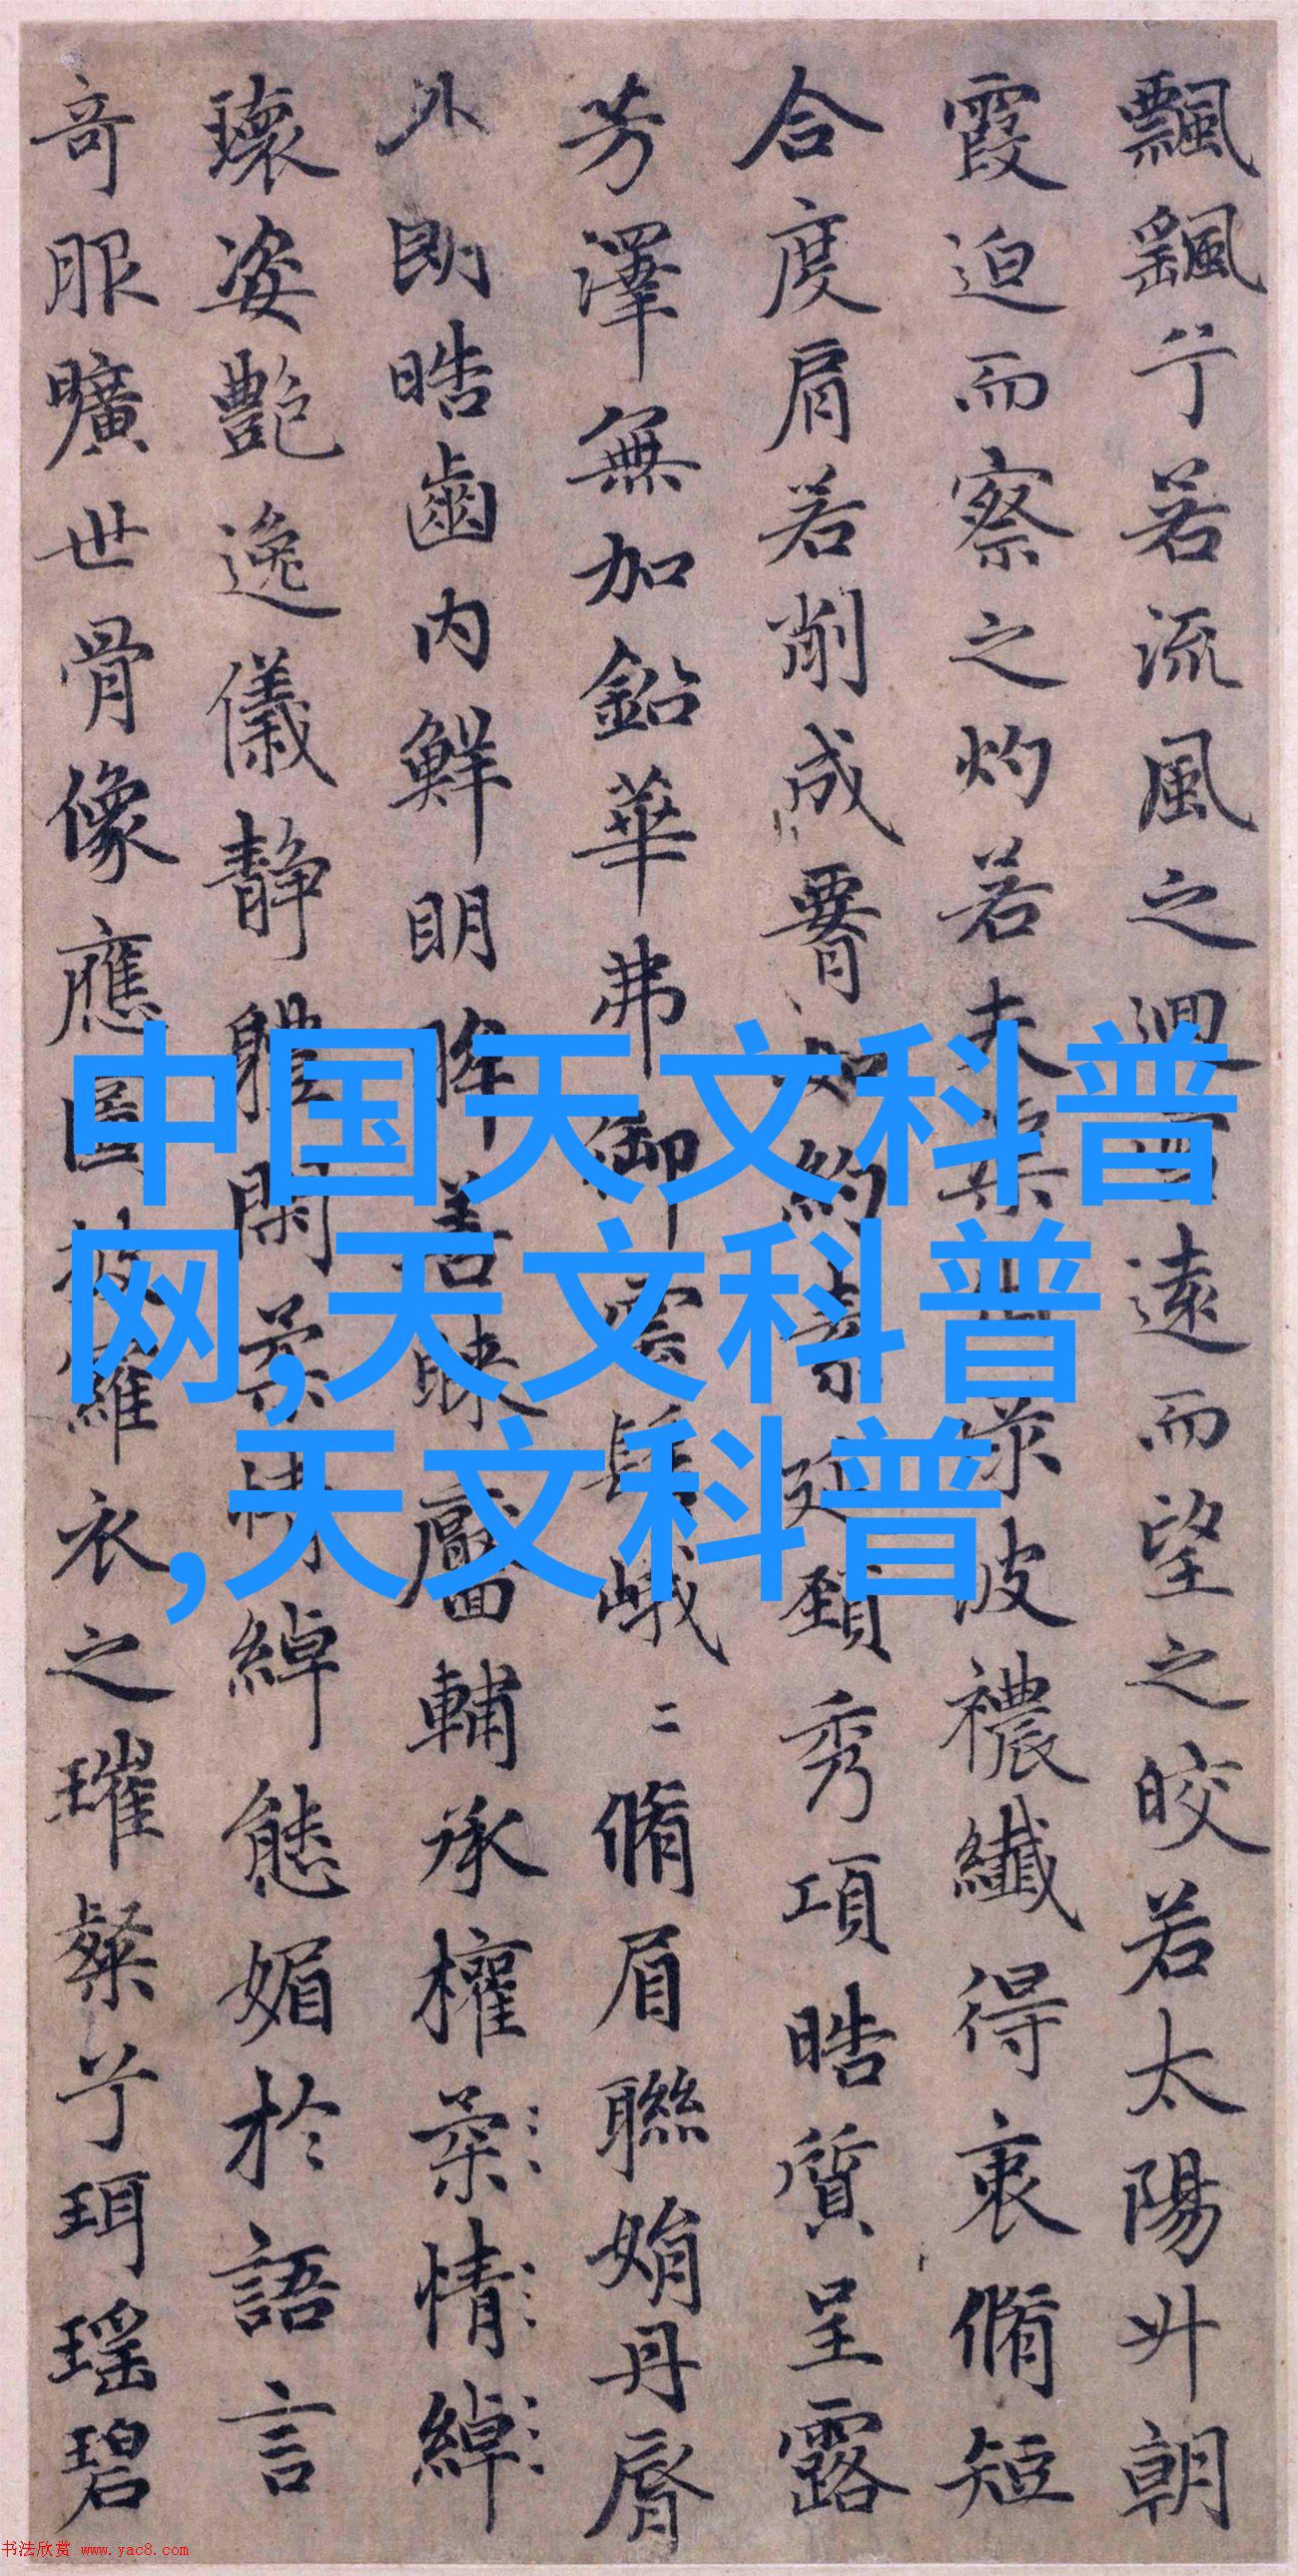 飄颻兮若流風之迴雪遠而望之皎若太陽升朝
霞迫而察之灼若夫蕖出淥波襛纖得衷脩短
合度肩若削成要如約素延頸秀項皓質呈露
芳澤無加鉛華弗御雲髻峨二脩眉聯娟丹脣
外朗皓齒內鮮明眸善睞靨輔承權柔情綽
瓌姿艷逸儀靜體閑柔情綽態媚於語言
奇服曠世骨像應圖披羅衣之璀粲兮珥瑤碧
中国天文科普
网,天文科普
,天文科普
书法欣赏 www.yac8.com